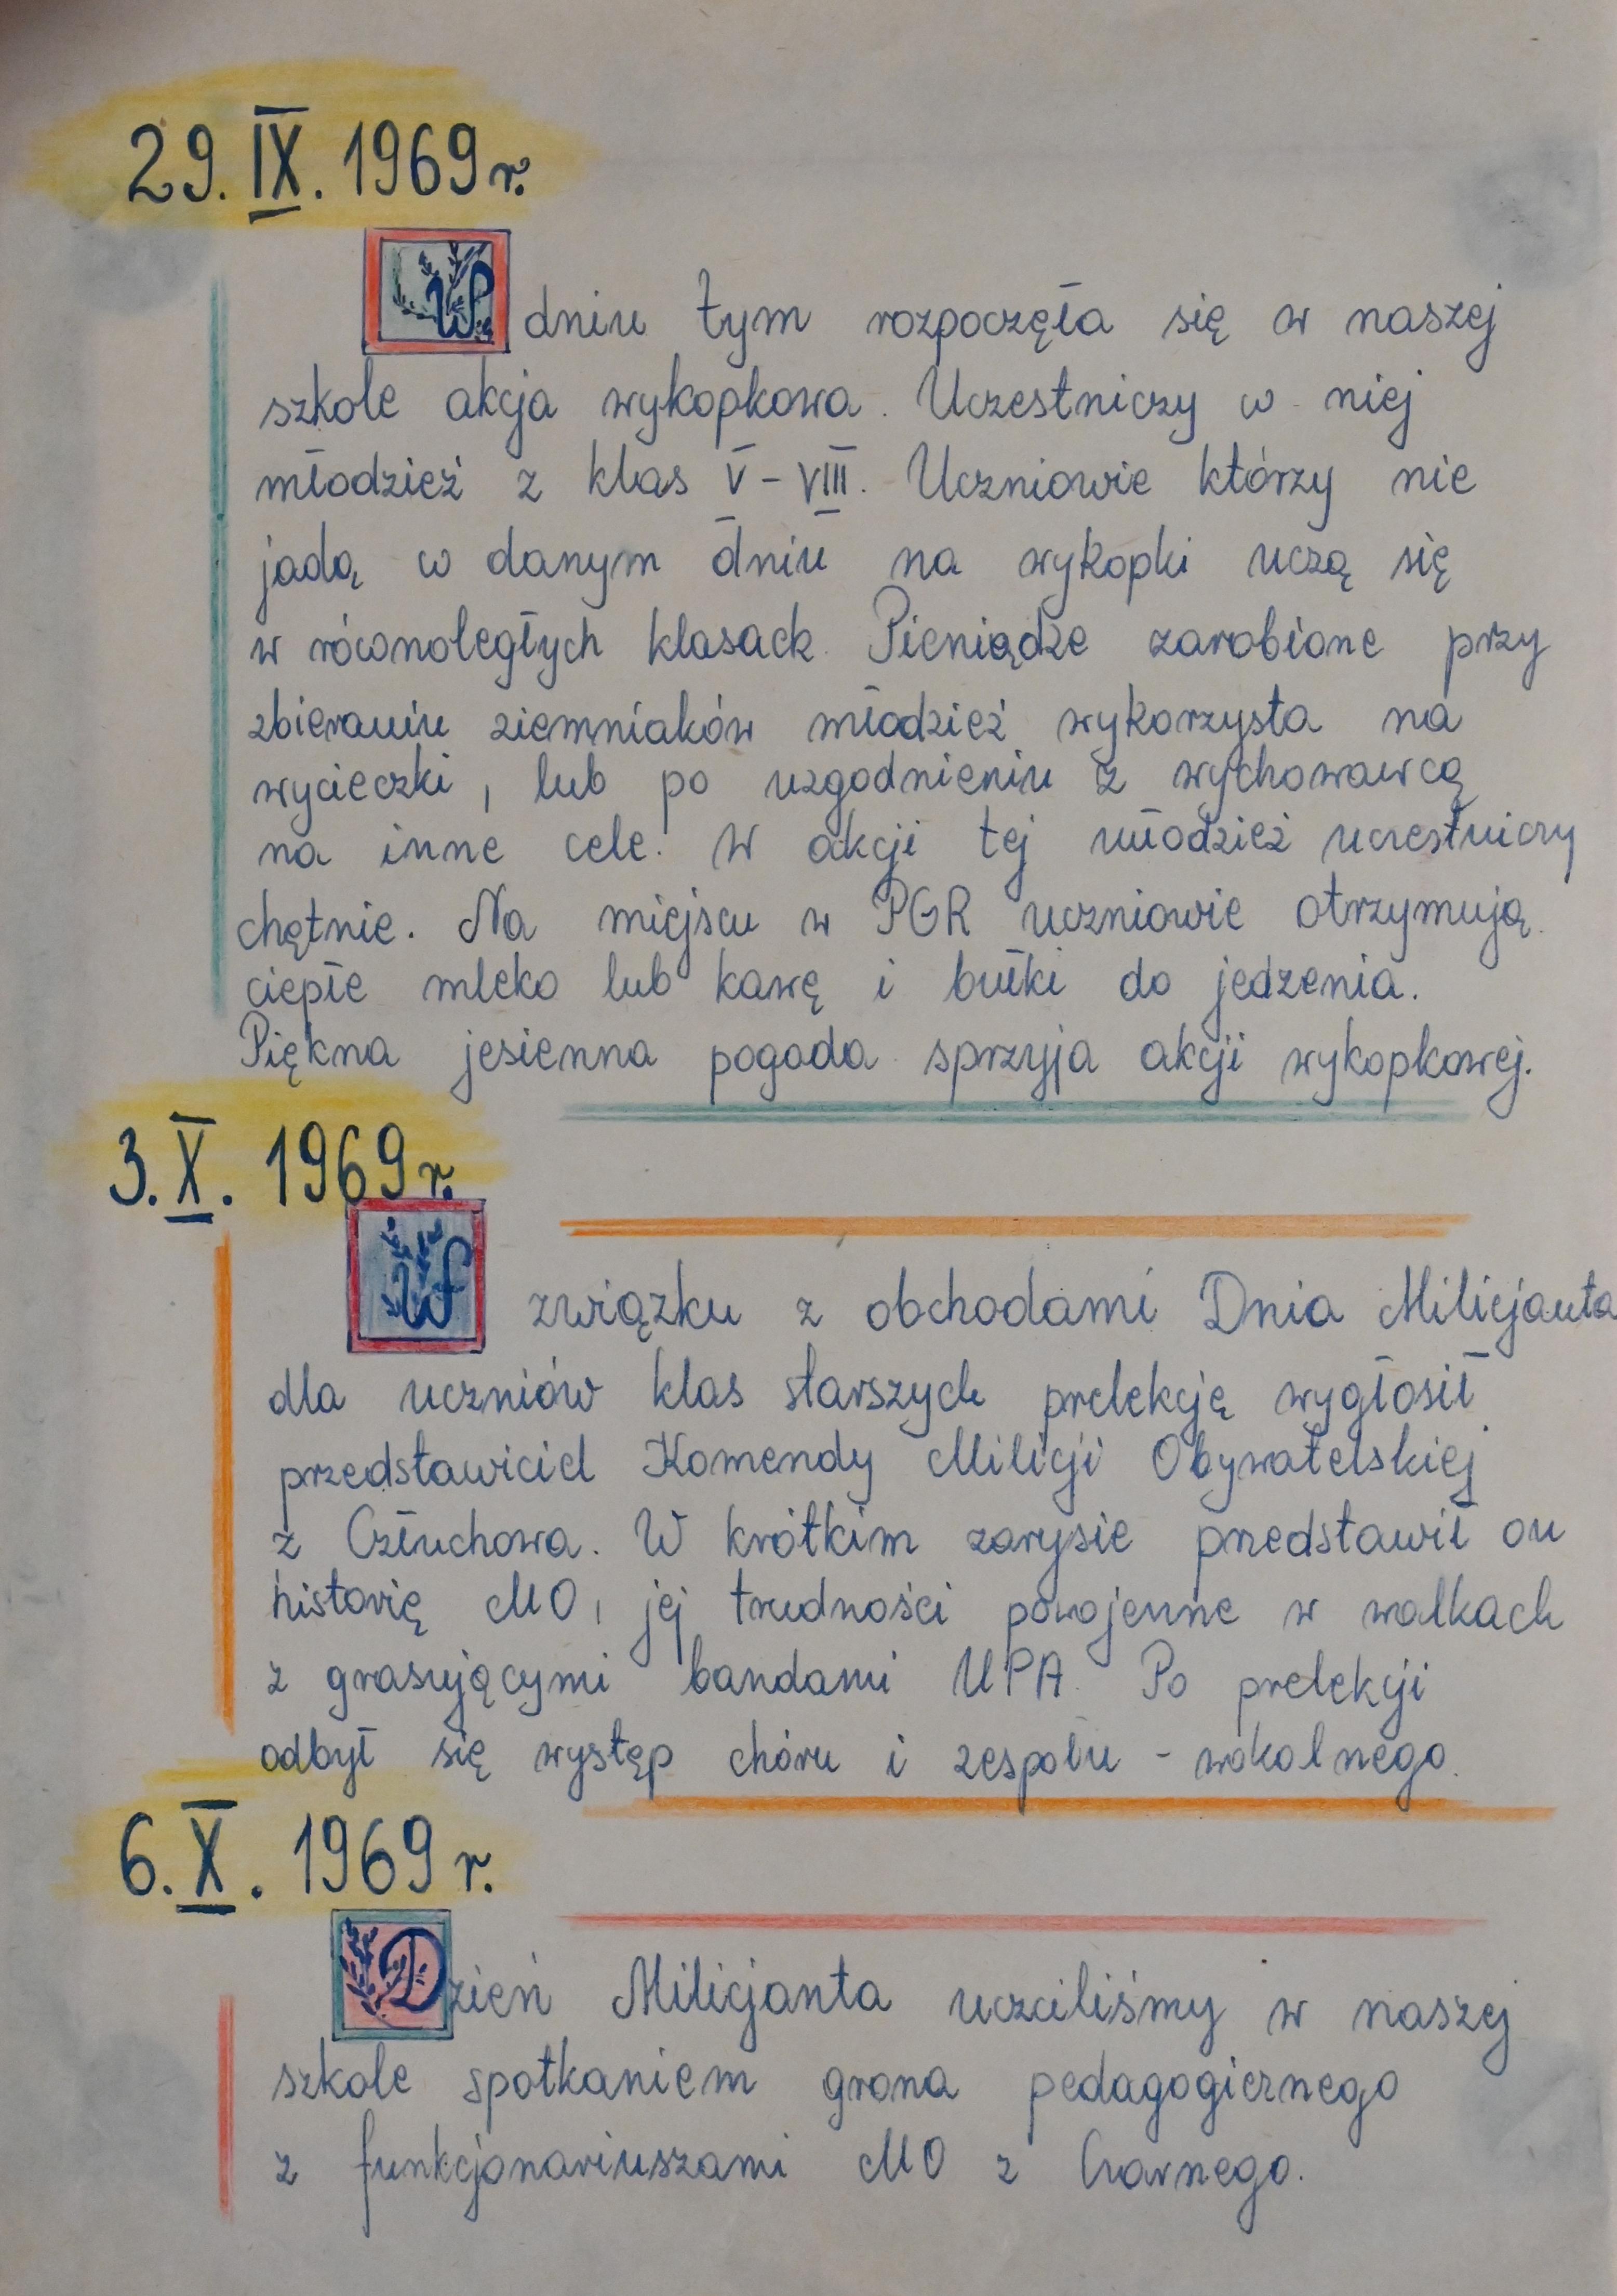 29. IX. 1969 r.
W dniu tym rozpoczęła się w naszej
szkole akcja wykopkowa. Uczestniczy w niej
młodzież z klas V - VIII. Uczniowie którzy nie
jadą w danym dniu na wykopki uczą się
w równoległych klasach. Pieniądze zarobione przy
zbieraniu ziemniaków młodzież wykorzysta na
wycieczki, lub po uzgodnieniu z wychowawcą
na inne cele. W akcji tej młodzież uczestniczy
chętnie. Na miejscu w PGR uczniowie otrzymują
ciepłe mleko lub kawę i bułki do jedzenia.
Piękna jesienna pogoda sprzyja akcji wykopkowej.
3. X. 1969 r.
W związku z obchodami Dnia Milicjanta
dla uczniów klas starszych prelekcję wygłosił
przedstawiciel Komendy Milicji Obywatelskiej
z Człuchowa. W krótkim zarysie przedstawił on
historię MO, jej trudności powojenne w walkach
z grasującymi bandami UPA. Po prelekcji
odbył się występ chóru i zespołu - wokalnego.
6. X. 1969 r.
Dzień Milicjanta uczciliśmy w naszej
szkole spotkaniem grona pedagogicznego
z funkcjonariuszami MO z Czarnego.